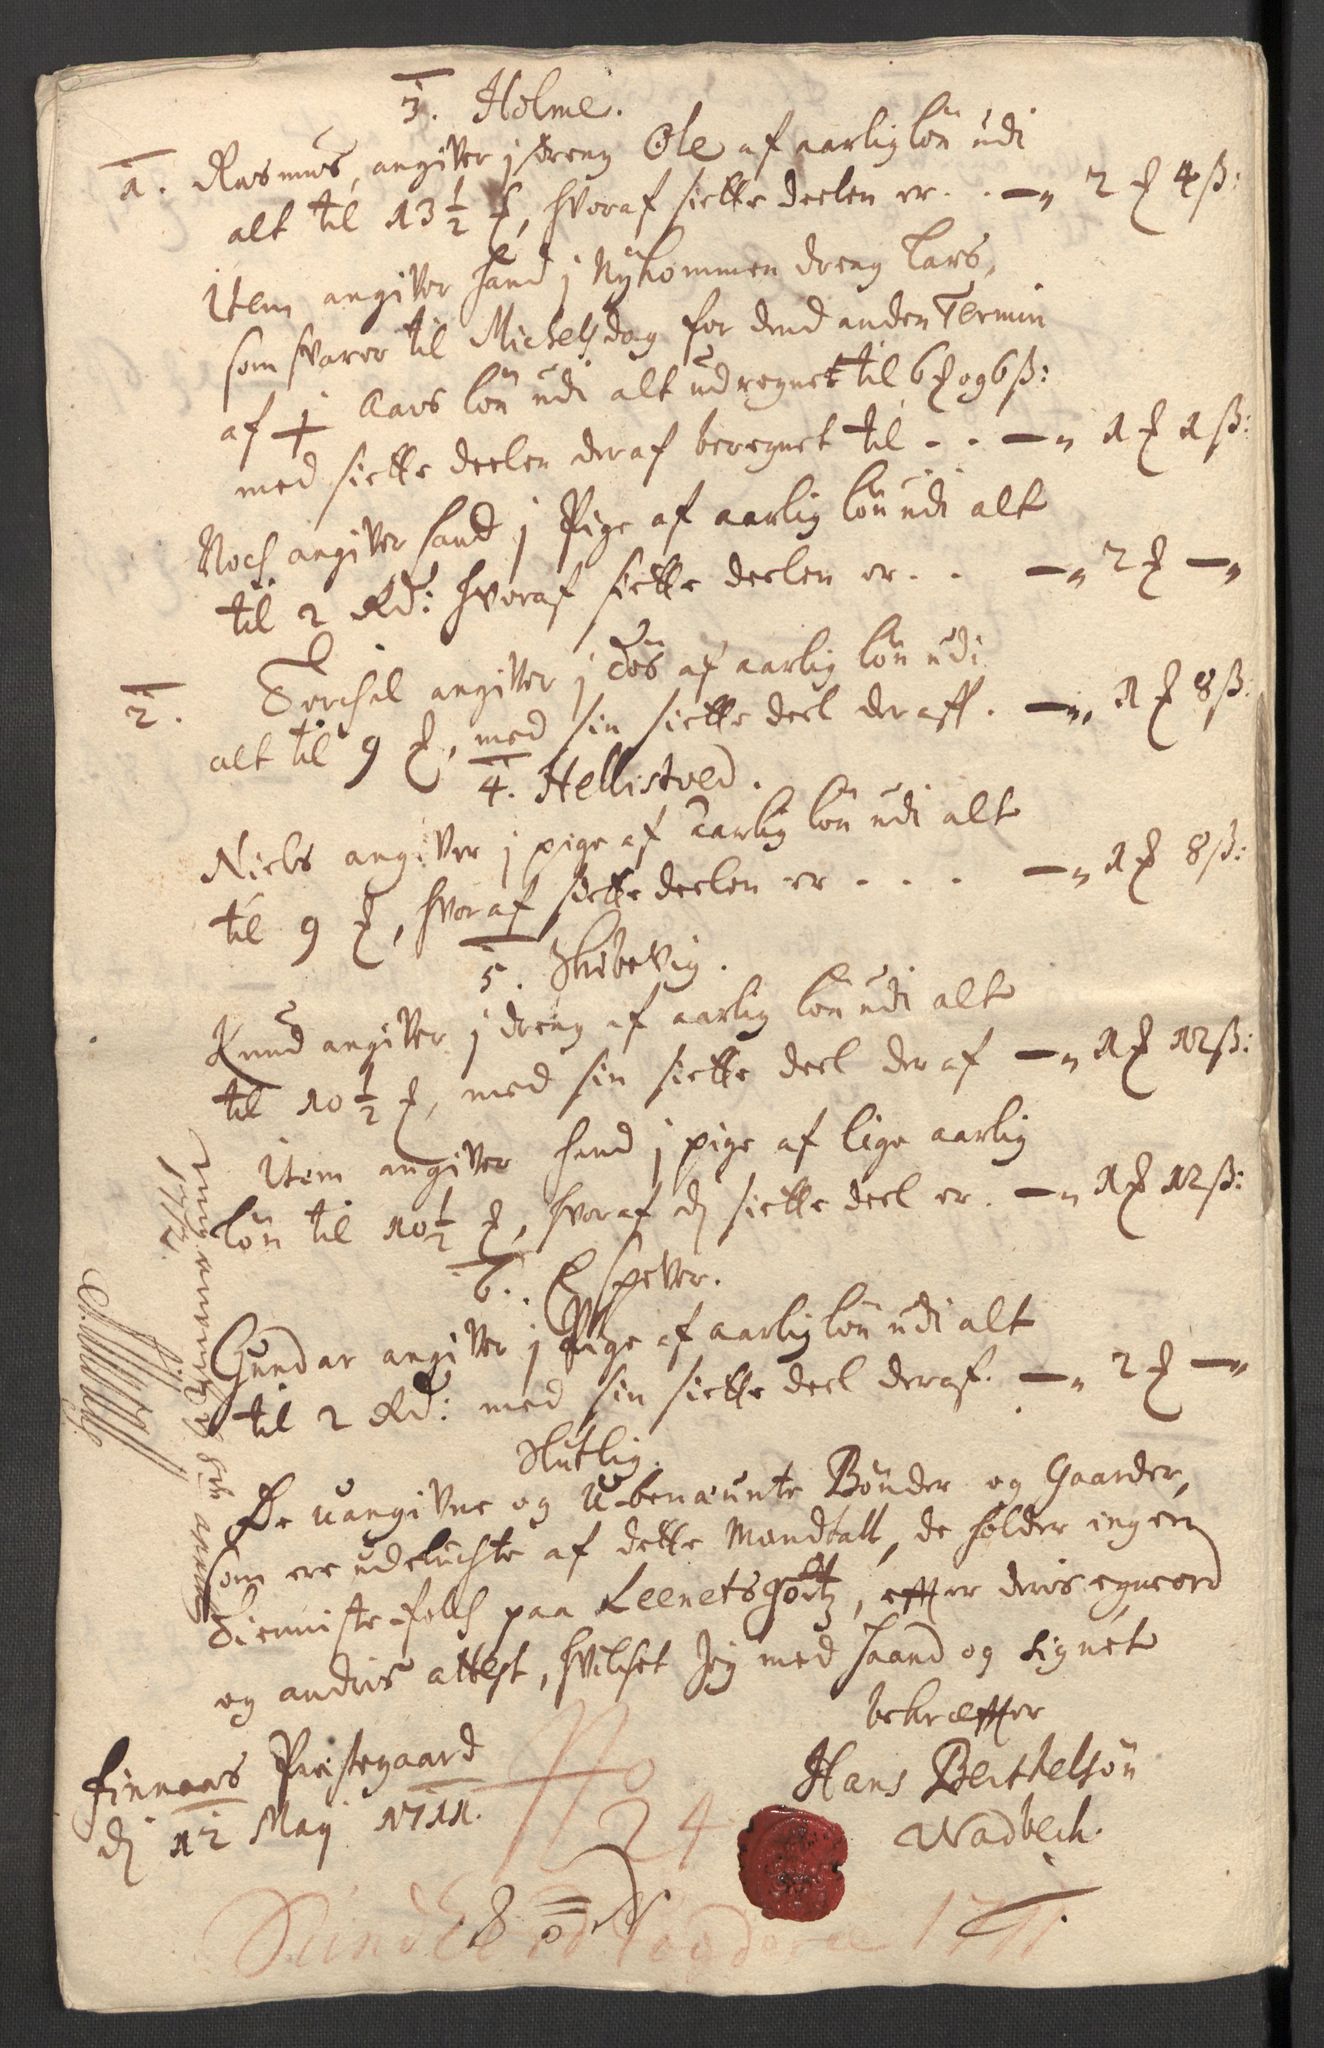 3. Holme.
1. Rasmus, angiver j dreng Ole af aarlig lön udi
alt til 13 1/2 ꝸ, hvoraf siette deelen er . . — „ 2 ꝸ 4 ß:
Item angiver hand j Nykommen dreng Lars,
som svarer til Michelsdag for dend anden Termin
af Aars lön udi alt udregnet til 6 ꝸ og 6 ß:
med siette deelen deraf beregnet til - - — „ 1 ꝸ 1 ß:
Noch angiver hand j Pige af aarlig lön udi alt
til 2 Rd: hvoraf siette deelen er . . — „ 2 ꝸ — „
2. Torchel angiver j Tös af aarlig lön udi
alt til 9 ꝸ, med sin siette deel deraff . — „ 1 ꝸ 8 ß:
4. Hellistved.
Niels angiver j pige af aarlig lön udi alt
til 9 ꝸ, hvoraf siette deelen er . . . — „ 1 ꝸ 8 ß:
5. Skibevig.
Knud angiver j dreng af aarlig lön udi alt
til 10 1/2 ꝸ, med sin siette deel deraf — „ 1 ꝸ 12 ß:
Item angiver hand j pige af lige aarlig
lön til 10 1/2 ꝸ, hvoraf dj siette deel er . — „ 1 ꝸ 12 ß:
6. Espever.
Gundar angiver j Pige af aarlig lön udi alt
til 2 Rd: med sin siette deel deraf . — „ 2 ꝸ — „
Slutlig.
De uangivne og U-benæunte Bönder og Gaarder,
som ere udeluchte af dette Mandtall, de holder ingen
Tienniste-folch paa Leenets Godtz, effter deris egne ord
og andris attest, hvilchet Jeg med Haand og Signet
bekræffter
Finnaas Præstegaard
dj 12 Maj 1711.
Hans Berthelsön
Wadbech.
No 24
Sundhord fogderie 1711
1712.